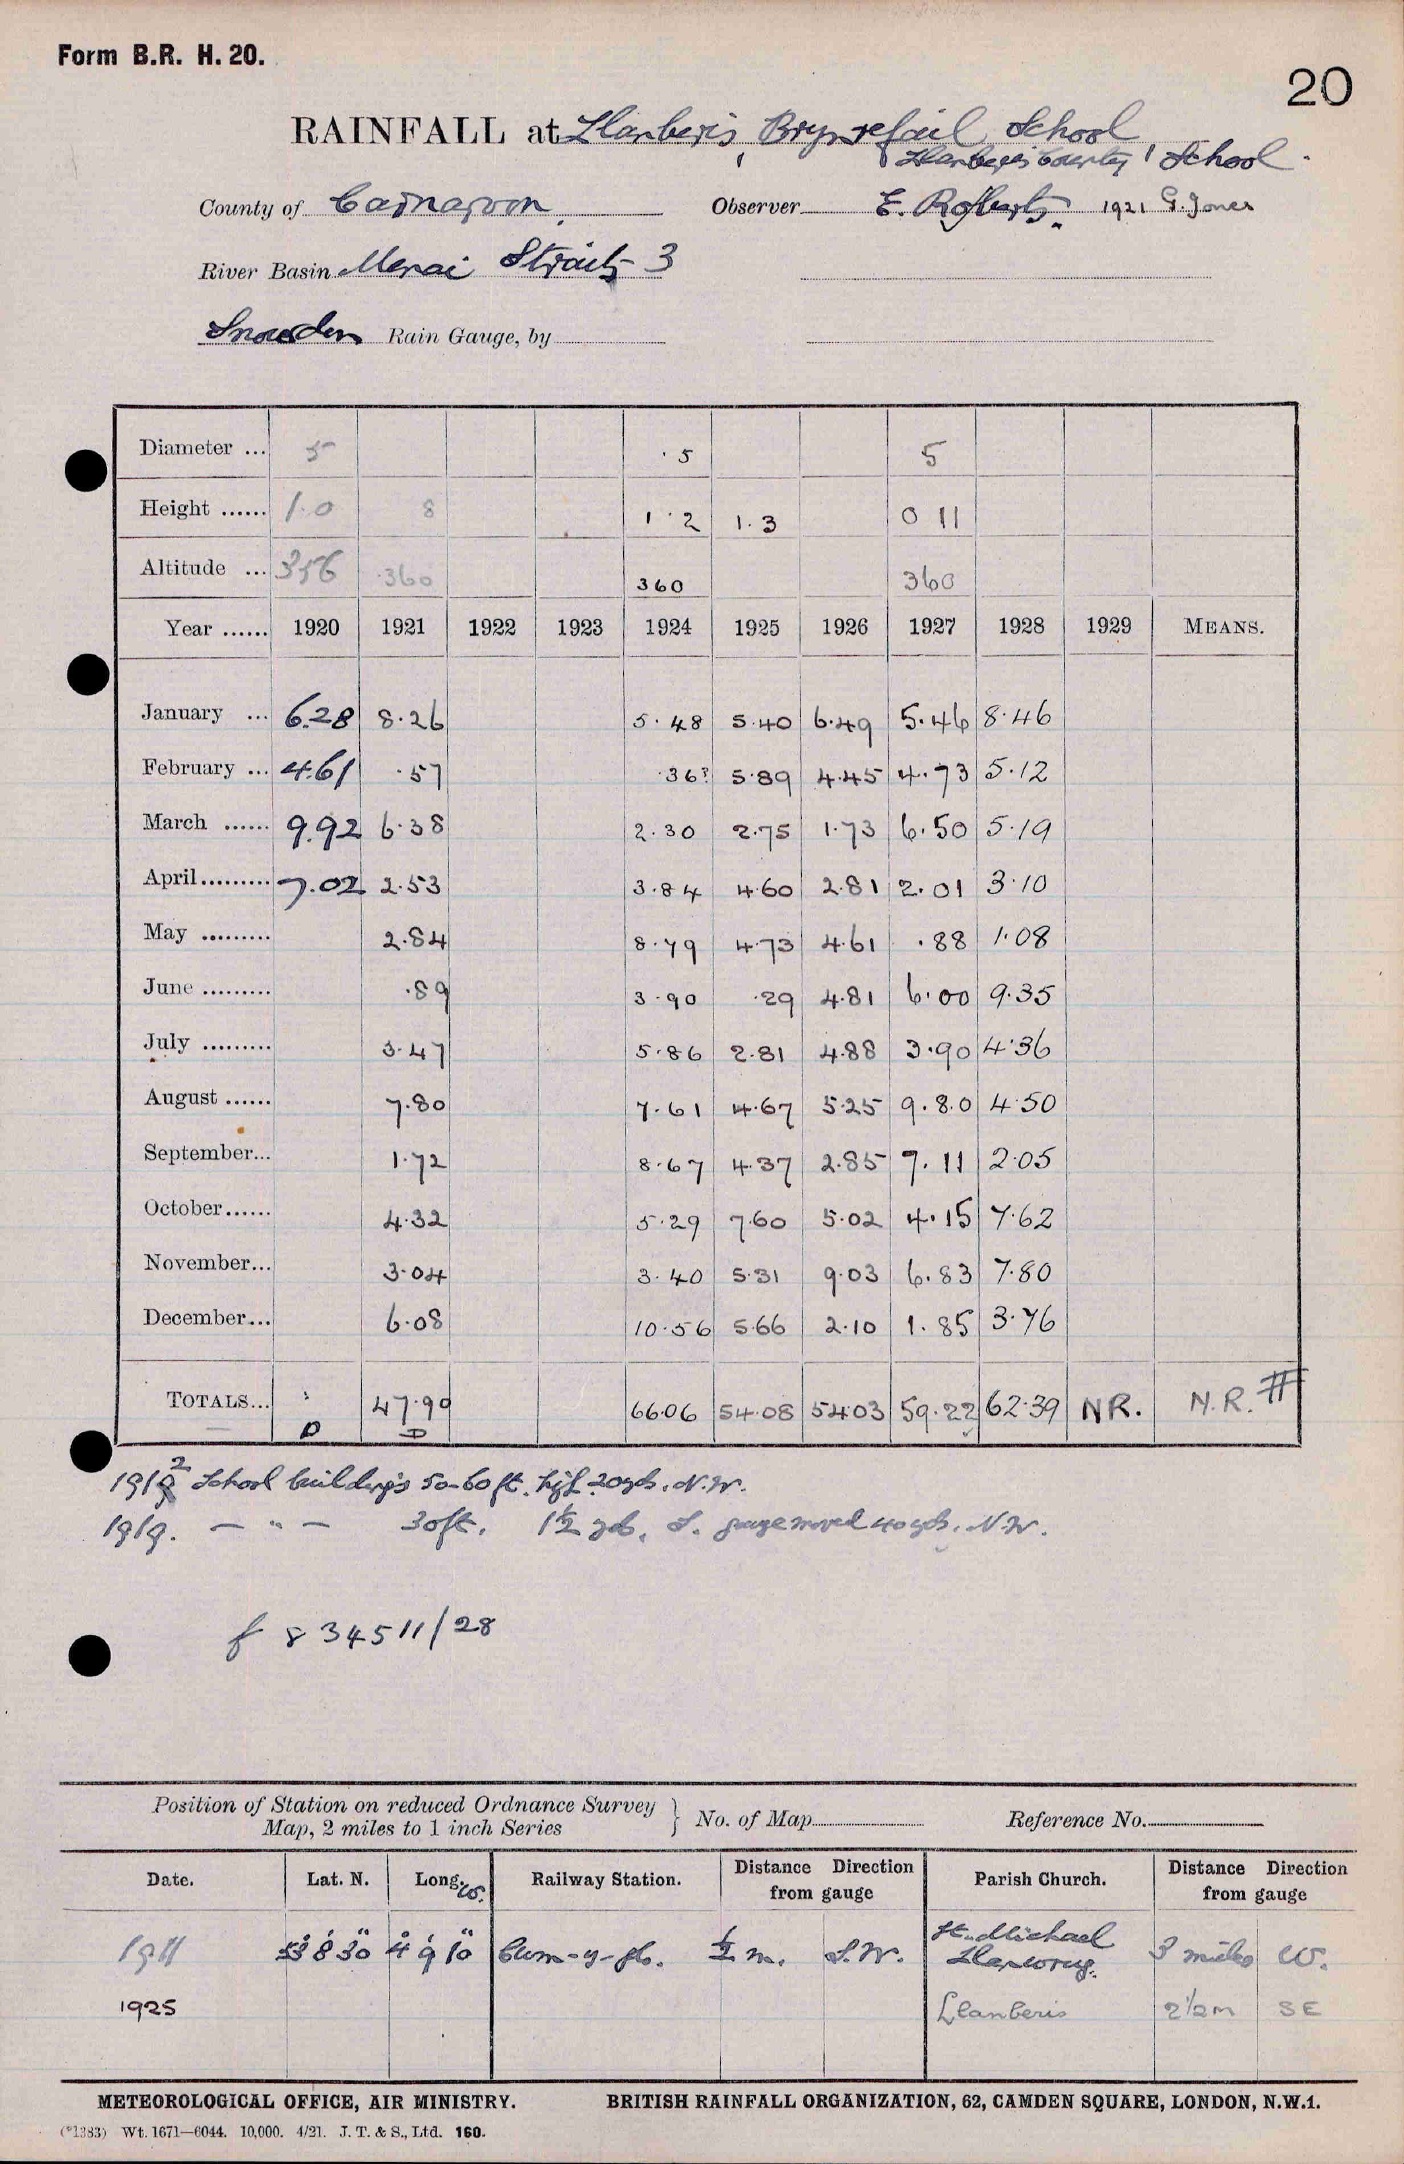 Form B.R. H. 20.
20
RAINFALL at Llanberis, Brynrefail School
Llanberis County School.
County of Carnarvon. Observer E. Roberts. 1921 G. Jones
River Basin Menai Straits 3
Snowdon Rain Gauge, by
Diameter ... 5 5 5
Height ...... 1.0 8 1.2 1.3 0 11
Altitude ... 356 360 360 360
Year ...... 1920 1921 1922 1923 1924 1925 1926 1927 1928 1929 MEANS.
January ... 6.28 8.26 5.48 5.40 6.49 5.46 8.46
February ... 4.61 .57 .36? 5.89 4.45 4.73 5.12
March ...... 9.92 6.38 2.30 2.75 1.73 6.50 5.19
April ......... 7.02 2.53 3.84 4.60 2.81 2.01 3.10
May ......... 2.84 8.79 4.73 4.61 .88 1.08
June ......... .89 3.90 .29 4.81 6.00 9.35
July ......... 3.47 5.86 2.81 4.88 3.90 4.36
August ...... 7.80 7.61 4.67 5.25 9.80 4.50
September... 1.72 8.67 4.37 2.85 7.11 2.05
October...... 4.32 5.29 7.60 5.02 4.15 7.62
November... 3.04 3.40 5.31 9.03 6.83 7.80
December... 6.08 10.56 5.66 2.10 1.85 3.76
TOTALS... D 47.90 D 66.06 54.08 54.03 59.22 62.39 NR. N.R. #
1912 School buildings 50-60 ft. high 20 yds. N.W.
1919. — " — 30 ft. 1½ yds. S. gauge moved 40 yds. N.W.
f 8 3 4 5 11/28
Position of Station on reduced Ordnance Survey Map, 2 miles to 1 inch Series } No. of Map Reference No.
Date. Lat. N. Long. W. Railway Station. Distance Direction from gauge Parish Church. Distance Direction from gauge
1911 53° 8' 30" 4° 9' 10" Cwm-y-glo. ½ m. S.W. St. Michael Llanrug. 3 miles W.
1925 Llanberis 2½ m SE
METEOROLOGICAL OFFICE, AIR MINISTRY. BRITISH RAINFALL ORGANIZATION, 62, CAMDEN SQUARE, LONDON, N.W.1.
(*1383) Wt. 1671—6044. 10,000. 4/21. J. T. & S., Ltd. 160.